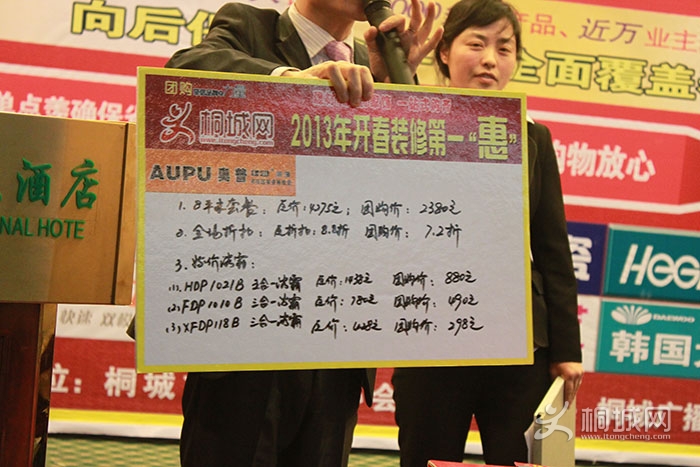 向后
产品、近万业主
全面覆盖
单点落确保
购物放心
酒店
NAL HOTE
团购
桐城网
www.itongcheng.com
2013年开春装修第一“惠”
AUPU 奥普
1. 8平米套餐: 原价: 4075元; 团购价: 2380元
2. 全场折扣: 原折扣: 8.8折 团购价: 7.2折
3. 特价浴霸:
(1). HDP1021B 三合一浴霸 原价: 1438元 团购价: 880元
(2) FDP1010B 三合一浴霸 原价: 780元 团购价: 490元
(3) XFDP118B 三合一浴霸 原价: 428元 团购价: 298元
瓷
DAEWOO
韩国大
快速
位: 桐城
会
桐城广播
桐城网
www.itongcheng.com